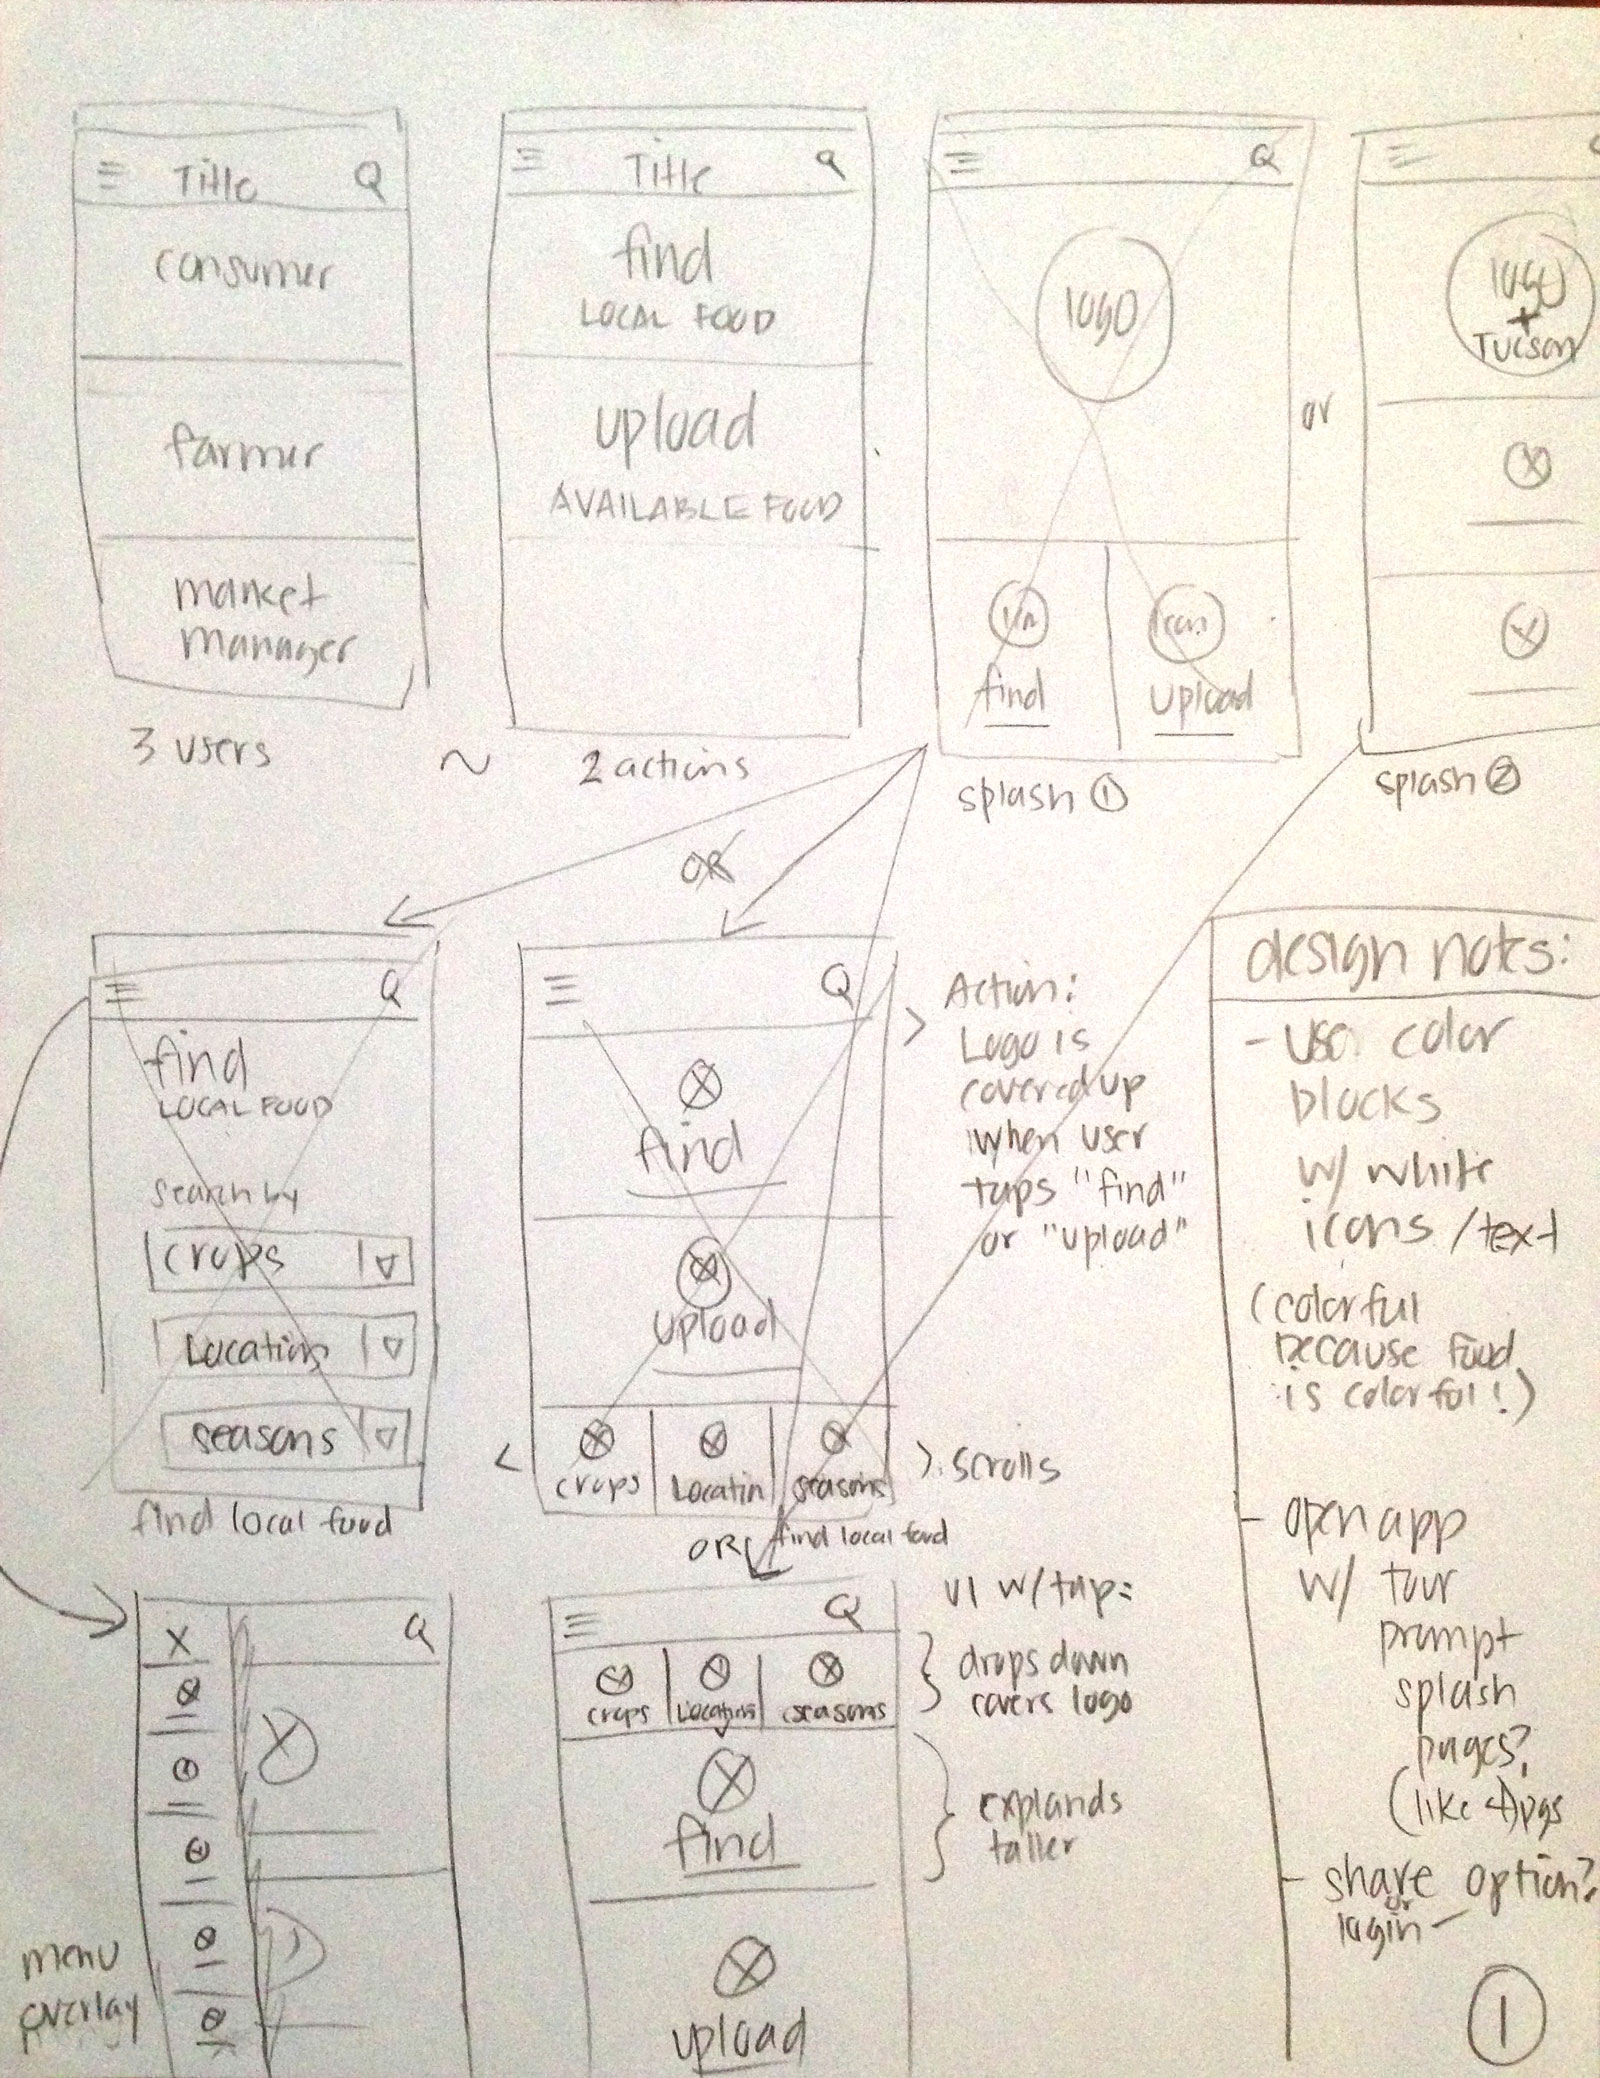 Title
consumer
farmer
market
manager
3 users
~
Title
find
LOCAL FOOD
upload
AVAILABLE FOOD
2 actions
logo
find
upload
splash ①
or
logo
+
Tucson
splash ②
OR
find
LOCAL FOOD
search by
crops
Location
seasons
find local food
find
upload
crops
Location
seasons
find local food
< > scrolls
> Action:
Logo is
covered up
when user
taps "find"
or "upload"
OR
X
menu
overlay
crops
Location
seasons
find
upload
UI w/ tap:
drops down
covers logo
explands
taller
design notes:
- use color
blocks
w/ white
icons / text
(colorful
because food
is colorful!)
- open app
w/ tour
prompt
splash
pages?
(like 4) pgs
- share option?
or
login -
①